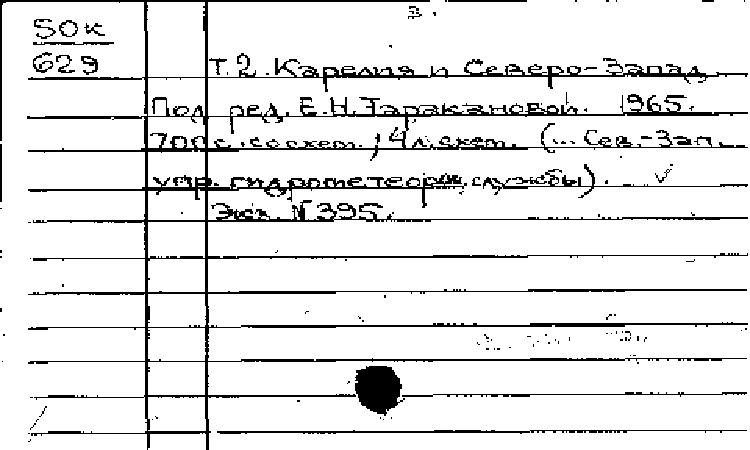 3.
50к
629
Т.2. Карелия и Северо-Запад.
Под ред. Е.Н. Таракановой. 1965.
700 с. со схем.; 4 л. схем. (... Сев.-Зап.
упр. гидрометеорол. службы). ✓
Экз. N 395.